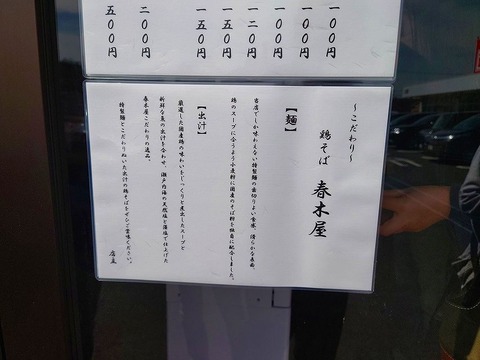 一〇〇円
一〇〇円
一二〇円
一五〇円
一五〇円
二〇〇円
五〇〇円
～こだわり～
鶏そば 春木屋
【麺】
当店でしか味わえない特製麺の歯切りよい食感、滑らかな表面、
鶏のスープに合うよう小麦粉に国産のそば粉を独自に配合しました。
【出汁】
厳選した国産鶏の味わいをじっくりと煮出したスープと
新鮮な魚の出汁を合わせ、瀬戸内海の天然塩と藻塩で仕上げた
春木屋こだわりの逸品。
特製麺とこだわりぬいた出汁の鶏そばをぜひご賞味ください。
店主